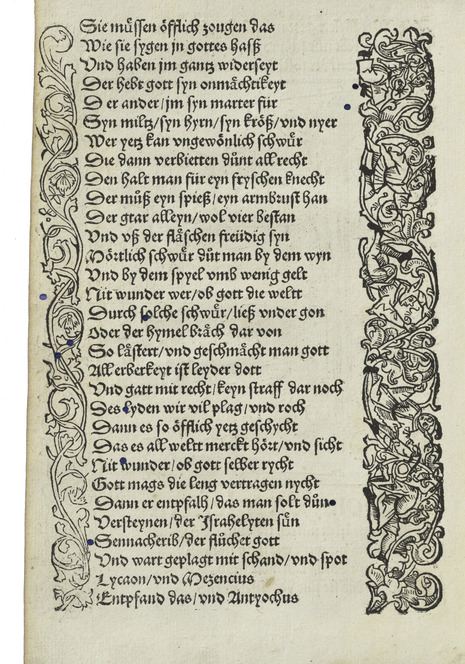 Sie müssen öfflich zougen das
Wie sie sygen jn gottes hasß
Vnd haben jm gantz widerseyt
Der hebt gott syn onmächtikeyt
Der ander/jm syn marter für
Syn miltz/syn hyrn/syn kröß/vnd nyer
Wer yetz kan vngewönlich schwuͤr
Die dann verbietten duͤnt all recht
Den halt man für eyn fryschen knecht
Der muͤß eyn spieß/eyn armbrust han
Der gtar alleyn/wol vier bestan
Vnd vß der fläschen freüdig syn
Mörtlich schwuͤr duͤt man by dem wyn
Vnd by dem spyel vmb wenig gelt
Nit wunder wer/ob gott die weltt
Durch solche schwuͤr/ließ vnder gon
Oder der hymel bräch dar von
So lästert/vnd geschmächt man gott
All erberkeyt ist leyder dott
Vnd gatt mit recht/keyn straff dar noch
Des lyden wir vil plag/vnd roch
Dann es so öfflich yetz geschycht
Das es all weltt merckt hört/vnd sicht
Nit wunder/ob gott selber rycht
Gott mags die leng vertragen nycht
Dann er entpfalh/das man solt duͤn
Versteynen/der Israhelyten suͤn
Sennacherib/der fluͤchet gott
Vnd wart geplagt mit schand/vnd spot
Lycaon/vnd Mezencius
Entpfand das/vnd Antyochus